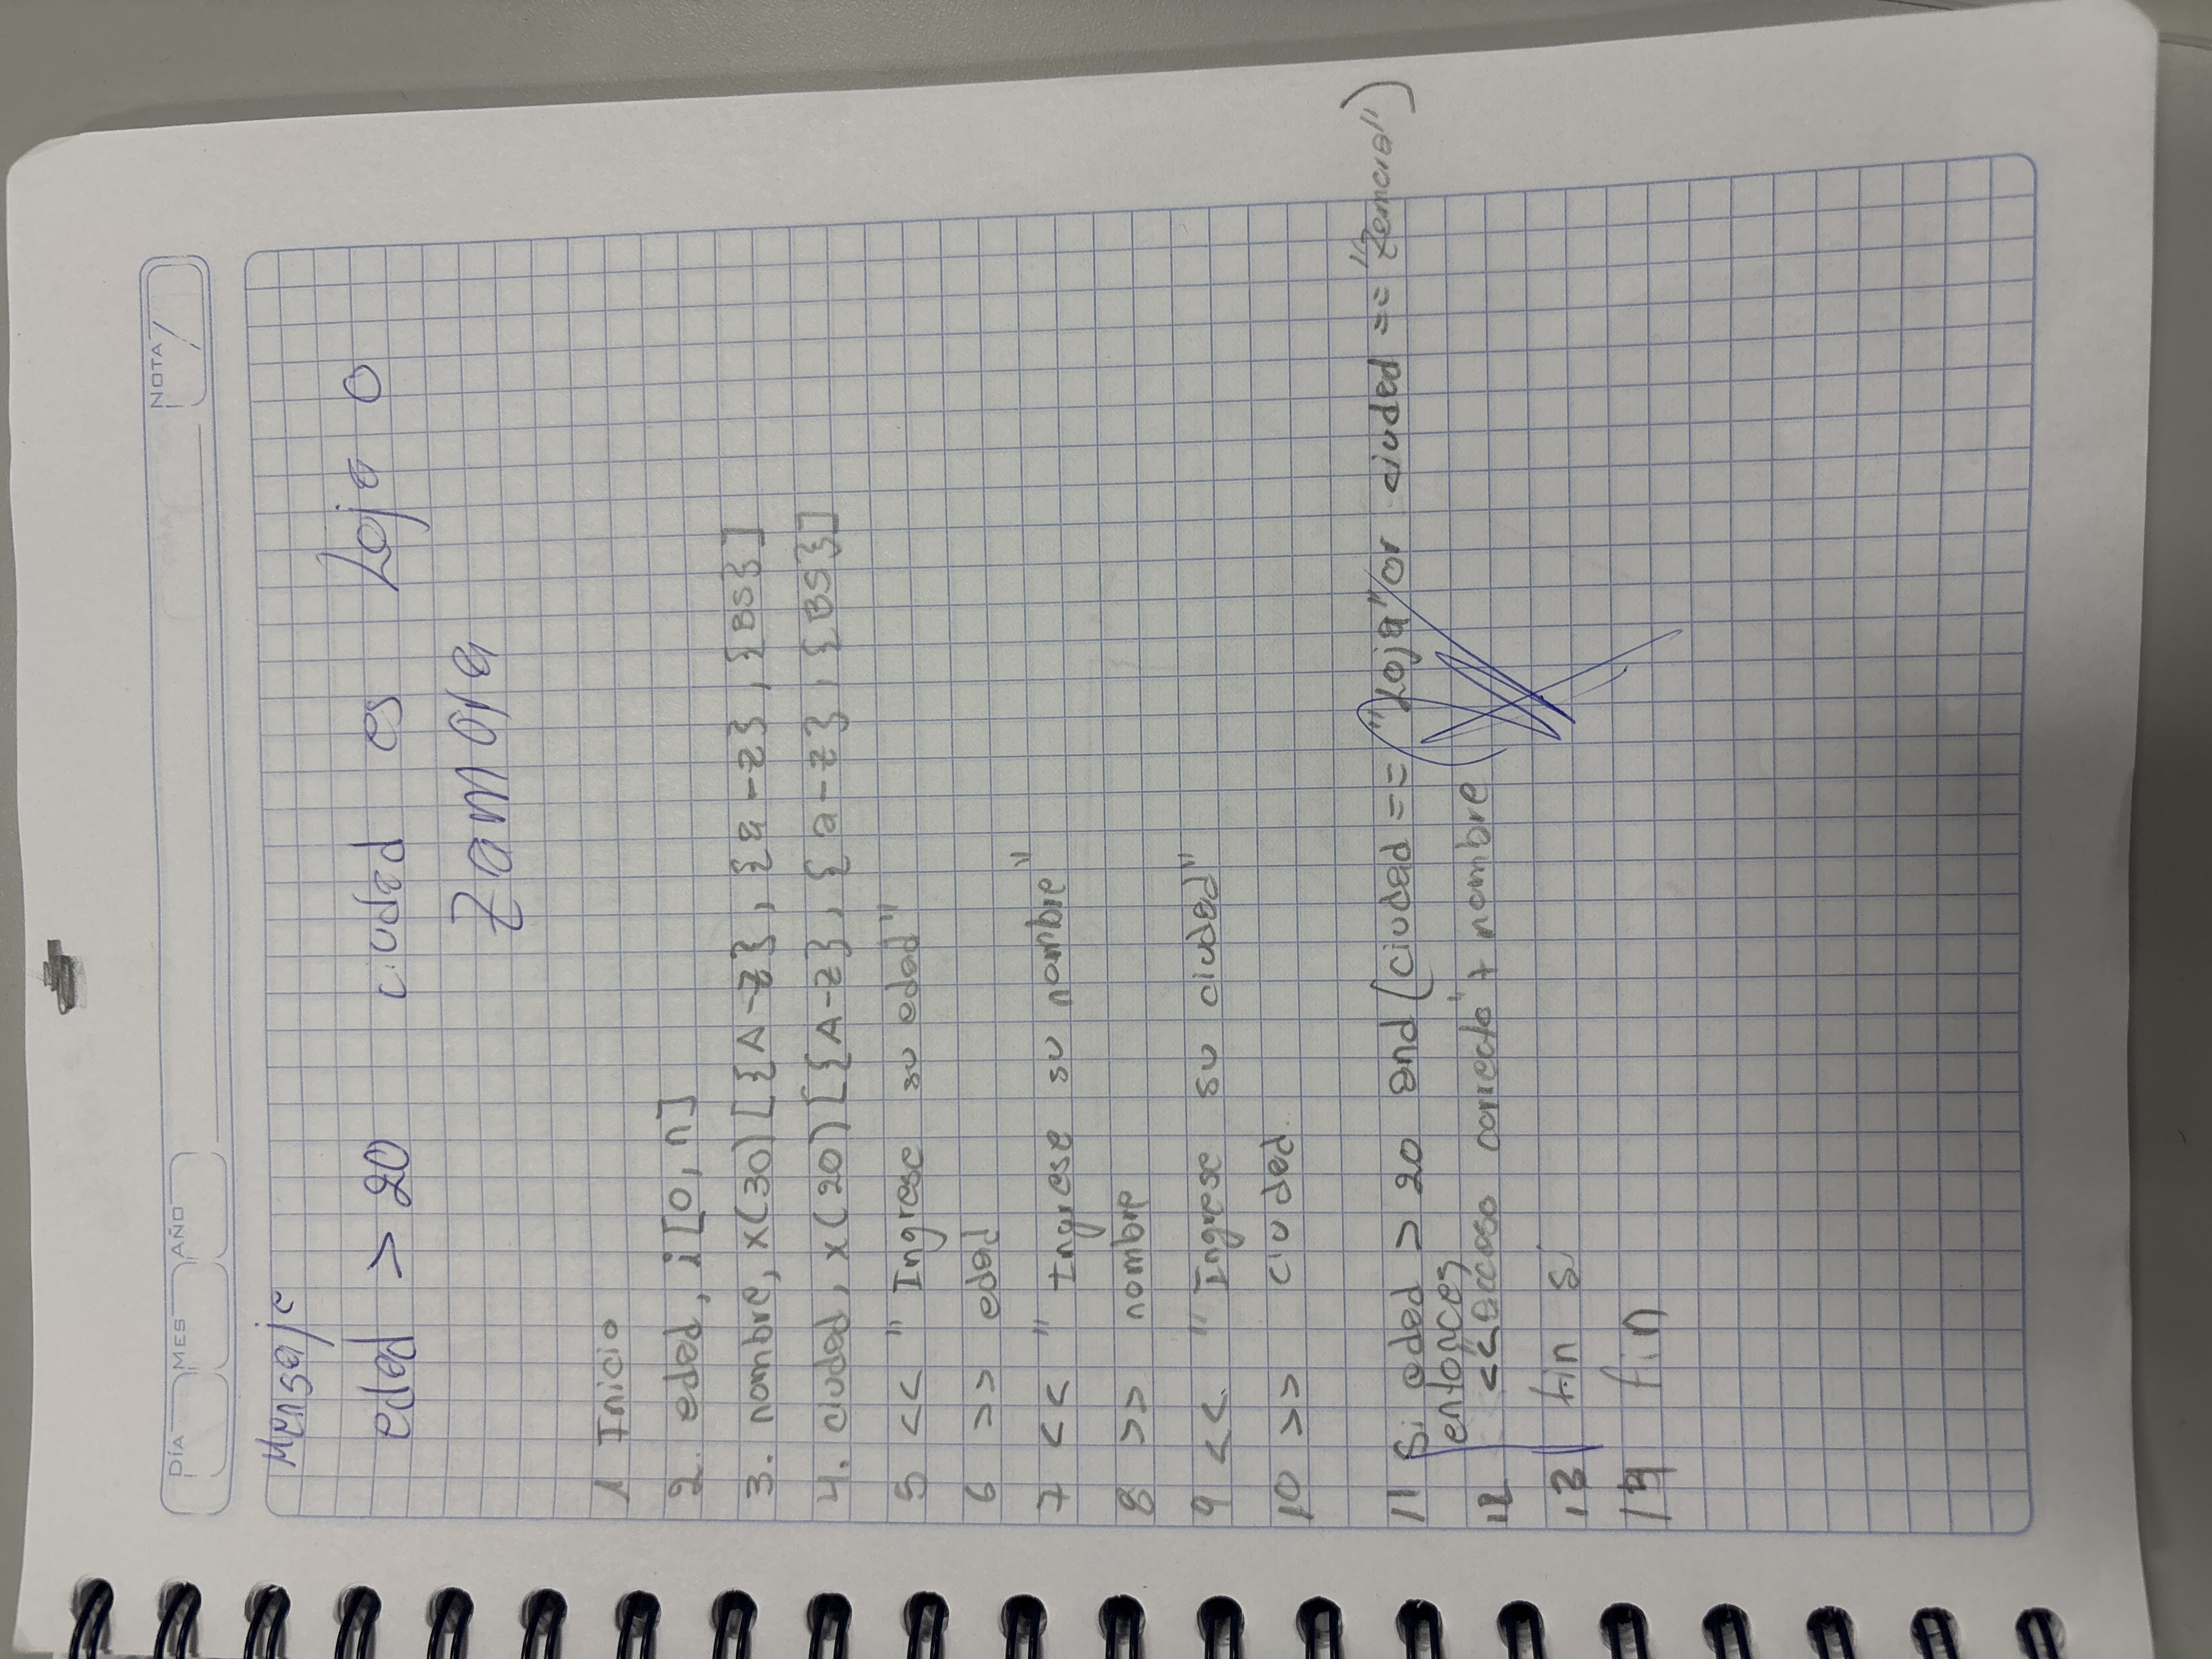 DÍA MES AÑO NOTA
Mensaje
edad > 20 ciudad es Loja o
Zamora
1 Inicio
2. edad, i [0, n]
3. nombre, x(30) [{A-Z}, {a-z}, {BS}]
4. ciudad, x(20) [{A-Z}, {a-z}, {BS}]
5 << "Ingrese su edad"
6 >> edad
7 << "Ingrese su nombre"
8 >> nombre
9 << "Ingrese su ciudad"
10 >> ciudad.
11 Si edad > 20 and (ciudad == "Loja" or ciudad == "Zamora")
entonces
12 << "acceso correcto" + nombre
13 fin si
14 fin